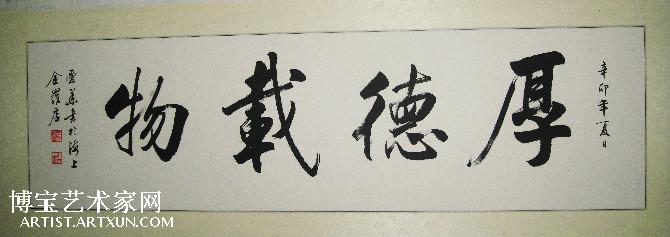 辛卯年夏日
厚德載物
雲華書於海上
金羅店
博宝艺术家网
ARTIST.ARTXUN.COM